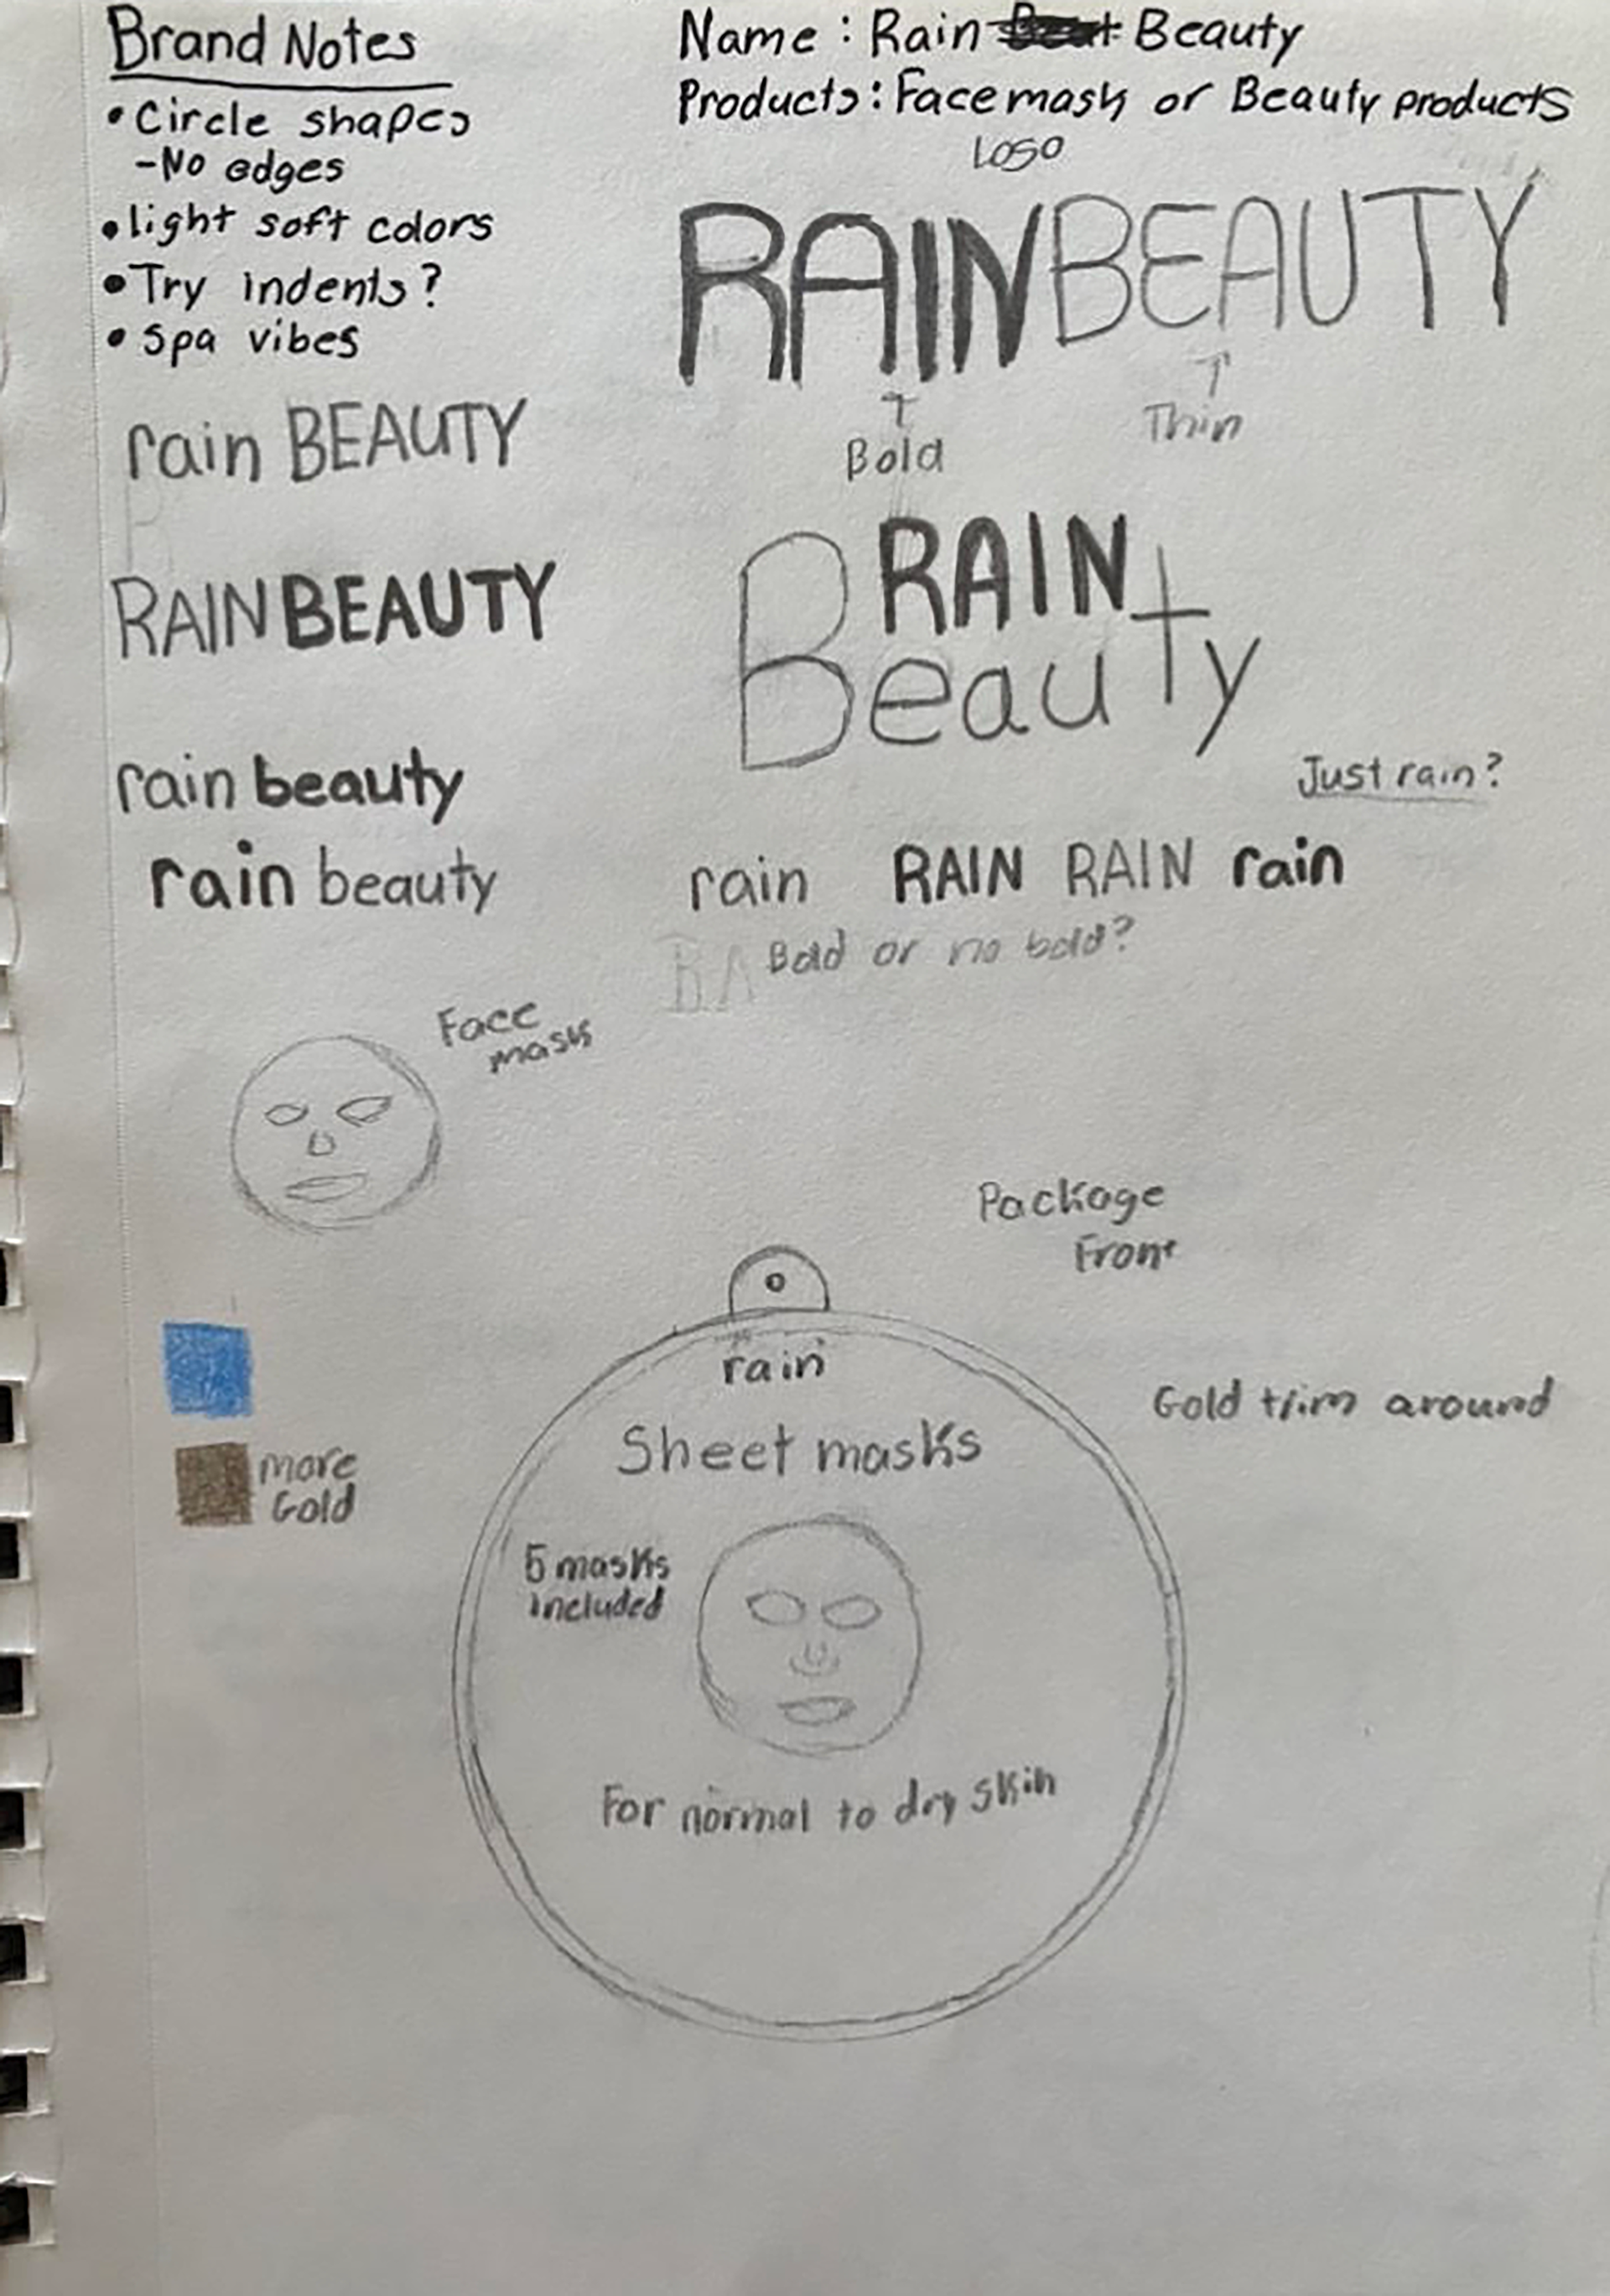 Brand Notes
• Circle shapes
-No edges
• light soft colors
• Try indents?
• Spa vibes
Name : Rain Beauty
Products: Facemask or Beauty products
Logo
RAINBEAUTY
↑
Bold
↑
Thin
rain BEAUTY
RAINBEAUTY
rain beauty
rain beauty
RAIN
Beauty
Just rain?
rain RAIN RAIN rain
RA Bold or no bold?
Face
mask
Package
Front
more
Gold
Gold trim around
rain
Sheet masks
5 masks
included
For normal to dry skin